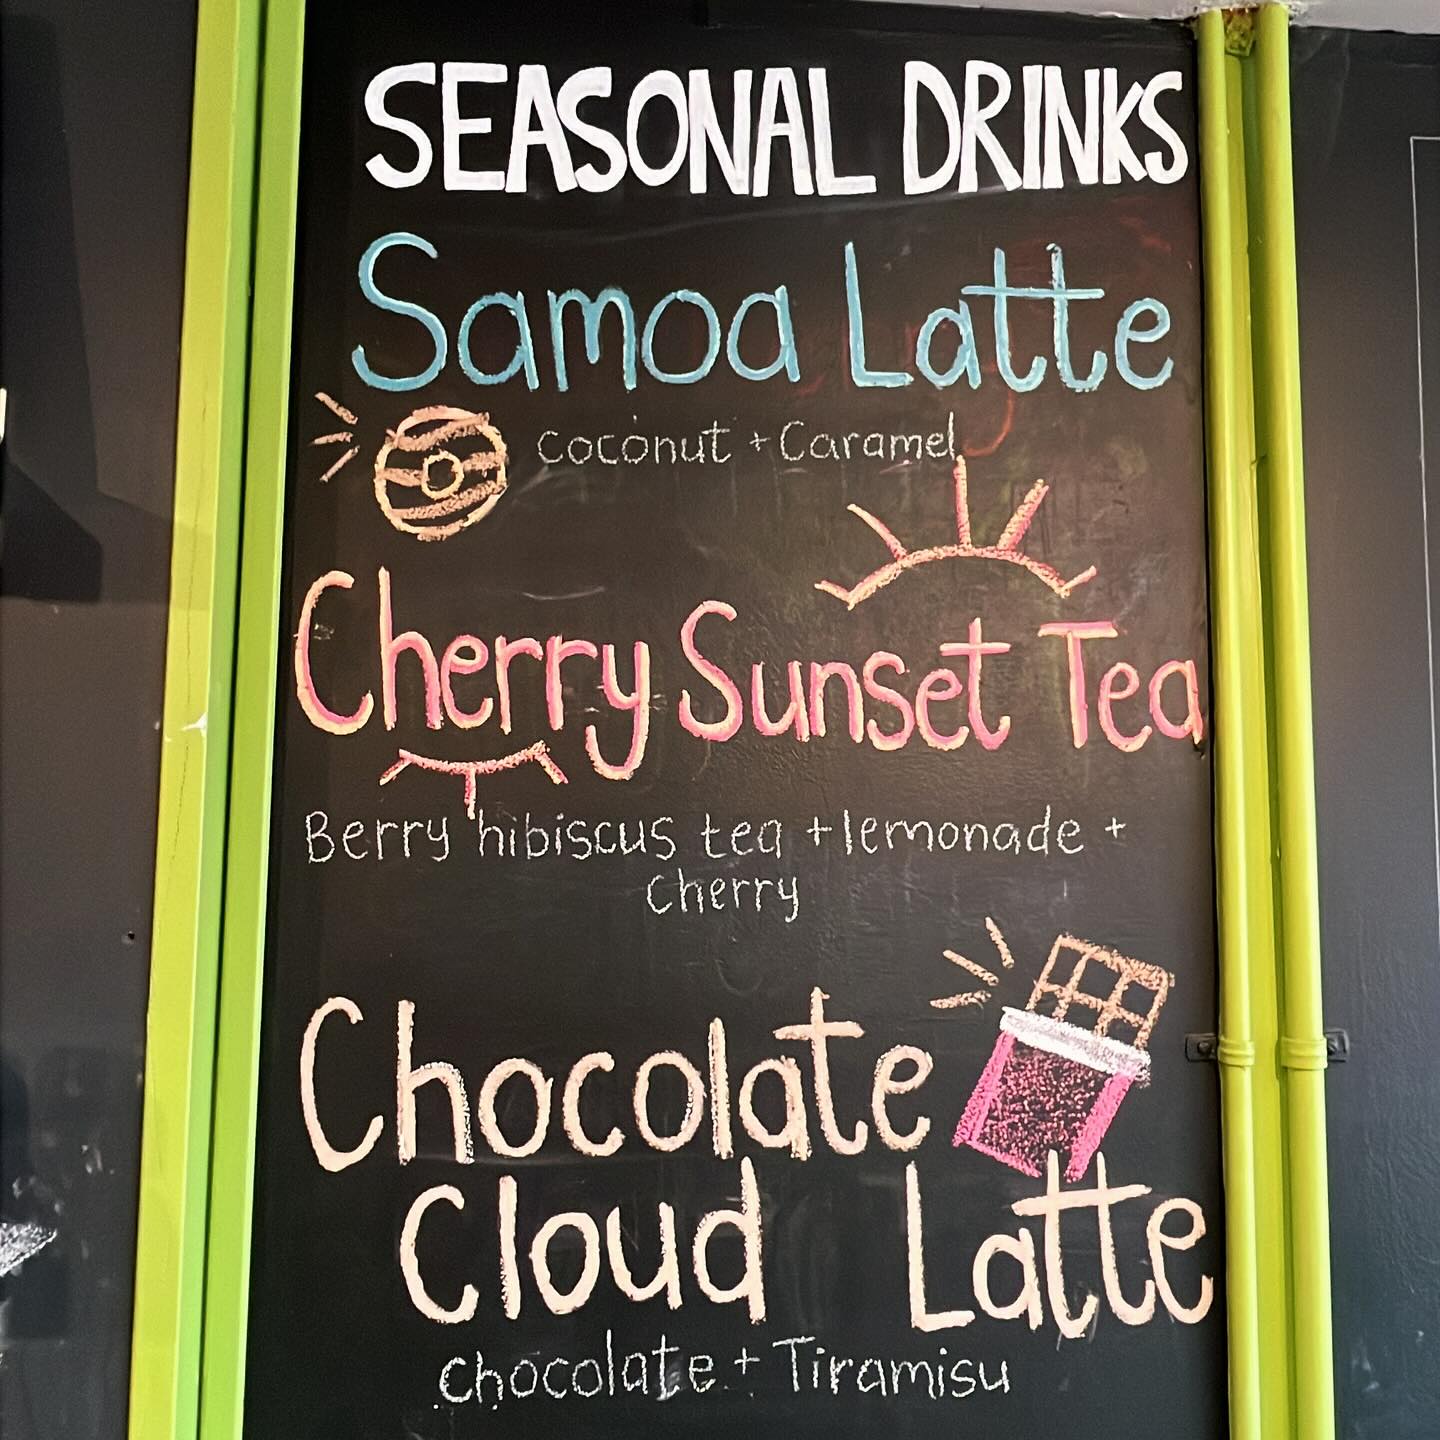 SEASONAL DRINKS
Samoa Latte
coconut + Caramel
Cherry Sunset Tea
Berry hibiscus tea + lemonade +
Cherry
Chocolate
Cloud Latte
chocolate + Tiramisu